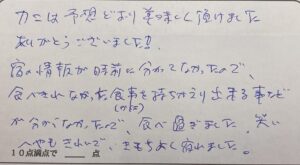 カニは予想どおり美味しく頂けました
ありがとうございました!!
宿の情報が時前に分かってなかったので、
食べきれなかった食事を持ちかえり出来る事など
(かに)
が分からなかったので、食べ過ぎました。笑い
へやもきれいで、きもちよく宿れました。
10点満点で 点